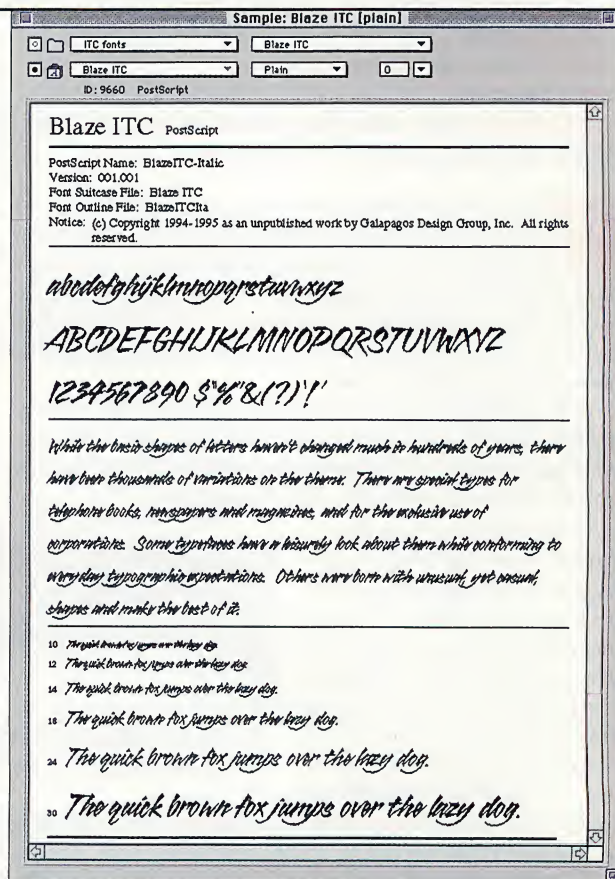 Sample: Blaze ITC [plain]
ITC fonts Blaze ITC
Blaze ITC Plain 0
ID: 9660 PostScript
Blaze ITC PostScript
PostScript Name: BlazeITC-Italic
Version: 001.001
Font Suitcase File: Blaze ITC
Font Outline File: BlazeITCIta
Notice: (c) Copyright 1994-1995 as an unpublished work by Galapagos Design Group, Inc. All rights
reserved.
abcdefghijklmnopqrstuvwxyz
ABCDEFGHIJKLMNOPQRSTUVWXYZ
1234567890 $“%”&(?)‘!’
While the basic shapes of letters haven't changed much in hundreds of years, there
have been thousands of variations on the theme. There are special types for
telephone books, newspapers and magazines, and for the exclusive use of
corporations. Some typefaces have a leisurely look about them while conforming to
everyday typographic expectations. Others were born with unusual, yet casual,
shapes and make the best of it.
10 The quick brown fox jumps over the lazy dog.
12 The quick brown fox jumps over the lazy dog.
14 The quick brown fox jumps over the lazy dog.
18 The quick brown fox jumps over the lazy dog.
24 The quick brown fox jumps over the lazy dog.
30 The quick brown fox jumps over the lazy dog.